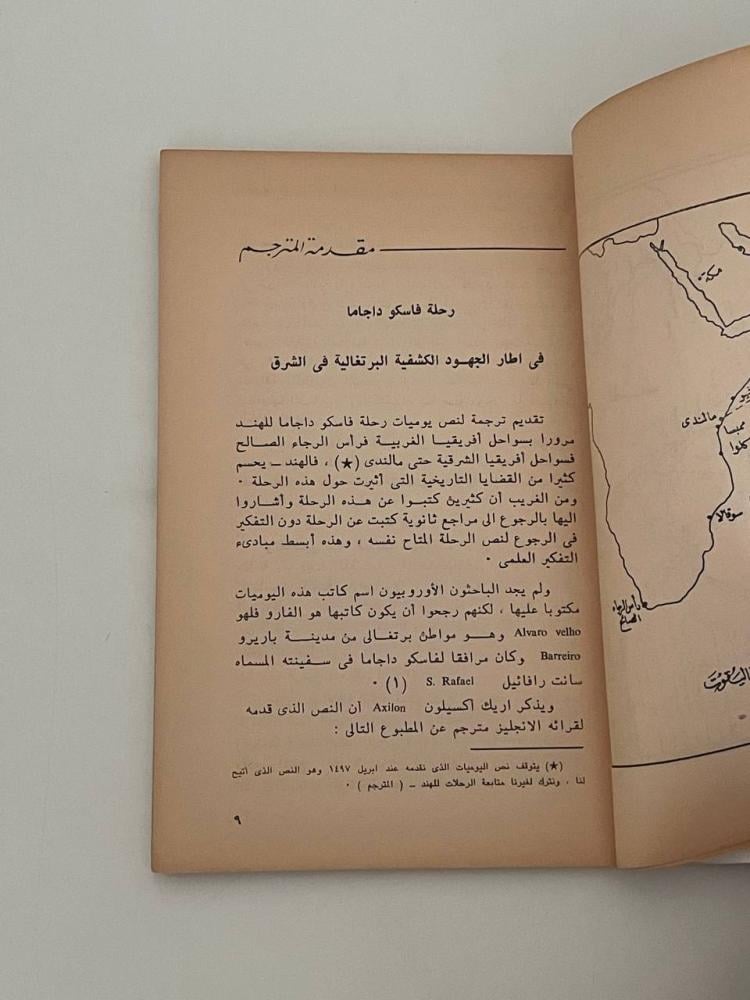 مقدمة المترجم
رحلة فاسكو داجاما
فى اطار الجهود الكشفية البرتغالية فى الشرق
تقديم ترجمة لنص يوميات رحلة فاسكو داجاما للهند
مرورا بسواحل أفريقيا الغربية فرأس الرجاء الصالح
فسواحل أفريقيا الشرقية حتى مالندى (★) ، فالهند ــ يحسم
كثيرا من القضايا التاريخية التى أثيرت حول هذه الرحلة ٠
ومن الغريب أن كثيرين كتبوا عن هذه الرحلة وأشاروا
اليها بالرجوع الى مراجع ثانوية كتبت عن الرحلة دون التفكير
فى الرجوع لنص الرحلة المتاح نفسه ، وهذه أبسط مبادىء
التفكير العلمى ٠
ولم يجد الباحثون الأوروبيون اسم كاتب هذه اليوميات
مكتوبا عليها ، لكنهم رجحوا أن يكون كاتبها هو الفارو فلهو
Alvaro velho وهو مواطن برتغالى من مدينة باريرو
Barreiro وكان مرافقا لفاسكو داجاما فى سفينته المسماه
سانت رافائيل S. Rafael (١) ٠
ويذكر اريك أكسيلون Axilon أن النص الذى قدمه
لقرائه الانجليز مترجم عن المطبوع التالى :
(★) يتوقف نص اليوميات الذى نقدمه عند ابريل ١٤٩٧ وهو النص الذى أتيح
لنا ، ونترك لغيرنا متابعة الرحلات للهند ــ ( المترجم ) ٠
٩
مكة
مالندى
ممبسا
كلوا
سوفالا
رأس الرجاء
الصالح